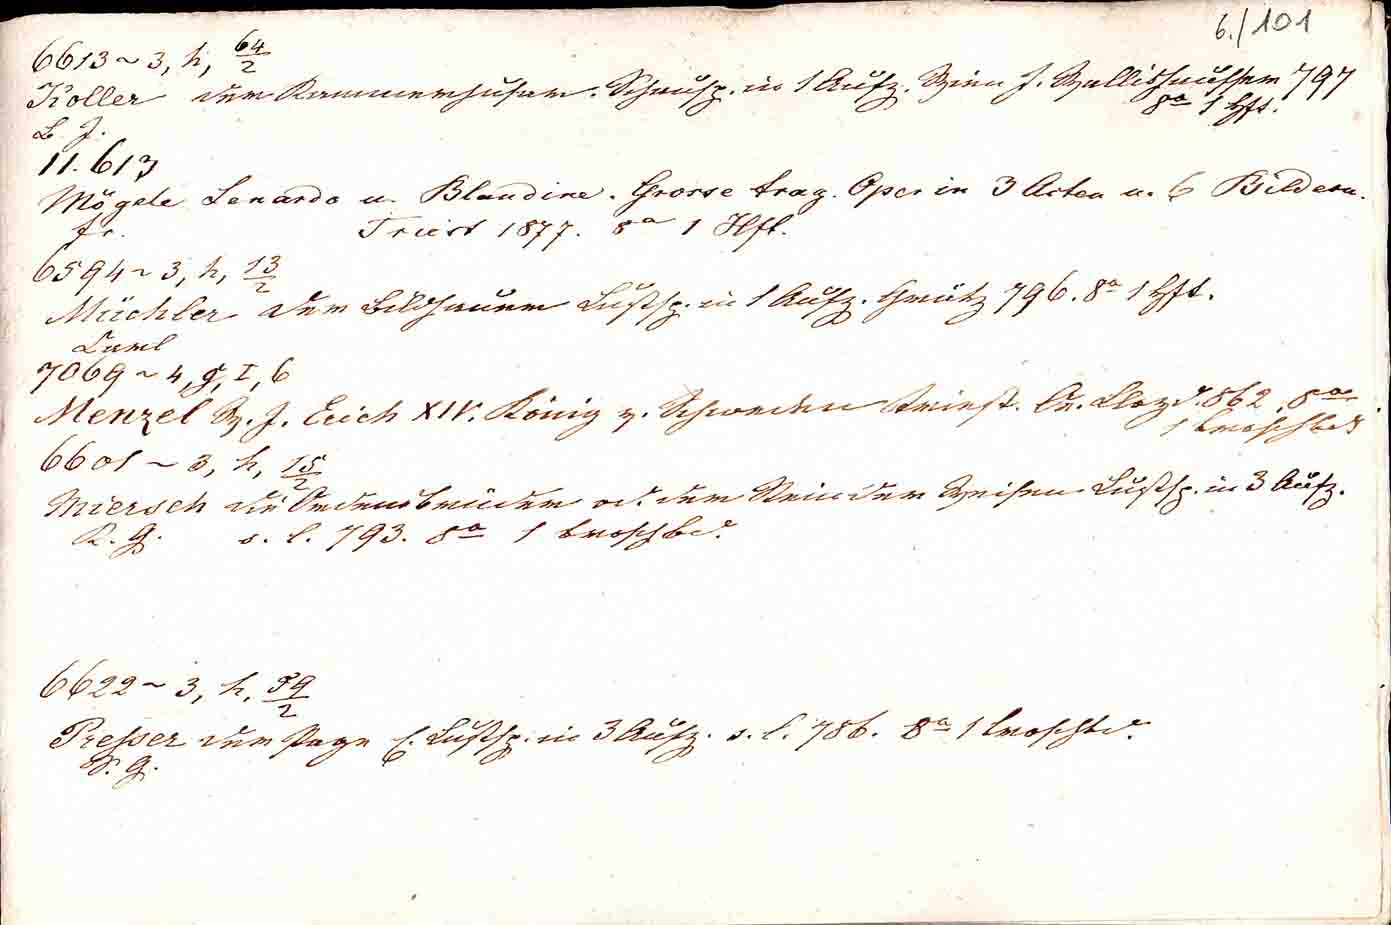 6./101
6613 ~ 3, h, 64/2
Koller der Kammerhusar. Schausp. in 1 Aufz. Wien J. Wallishausser 797
8° 1 Hft.
B. J.
11.613
Mögele Lenardo u. Blandine. Grosse trag. Oper in 3 Acten u. 6 Bildern.
Fr. Triest 1877. 8° 1 Hft.
6594 ~ 3, h, 13/2
Müchler der Bildhauer Lustsp. in 1 Aufz. Grätz 796. 8° 1 Hft.
Carl
7069 ~ 4, g, I, 6
Menzel W. J. Erich XIV. König v. Schweden Triest. Oe. Lloyd. 862. 8°
1 broschbd
6601 ~ 3, h, 15/2
Miersch die Ordensbrüder od. der Stein der Weisen Lustsp. in 3 Aufz.
K. G. s. l. 793. 8° 1 broschbd.
6622 ~ 3, h, 59/2
Presser der Page E. Lustsp. in 3 Aufz. s. l. 786. 8° 1 broschbd.
S. G.